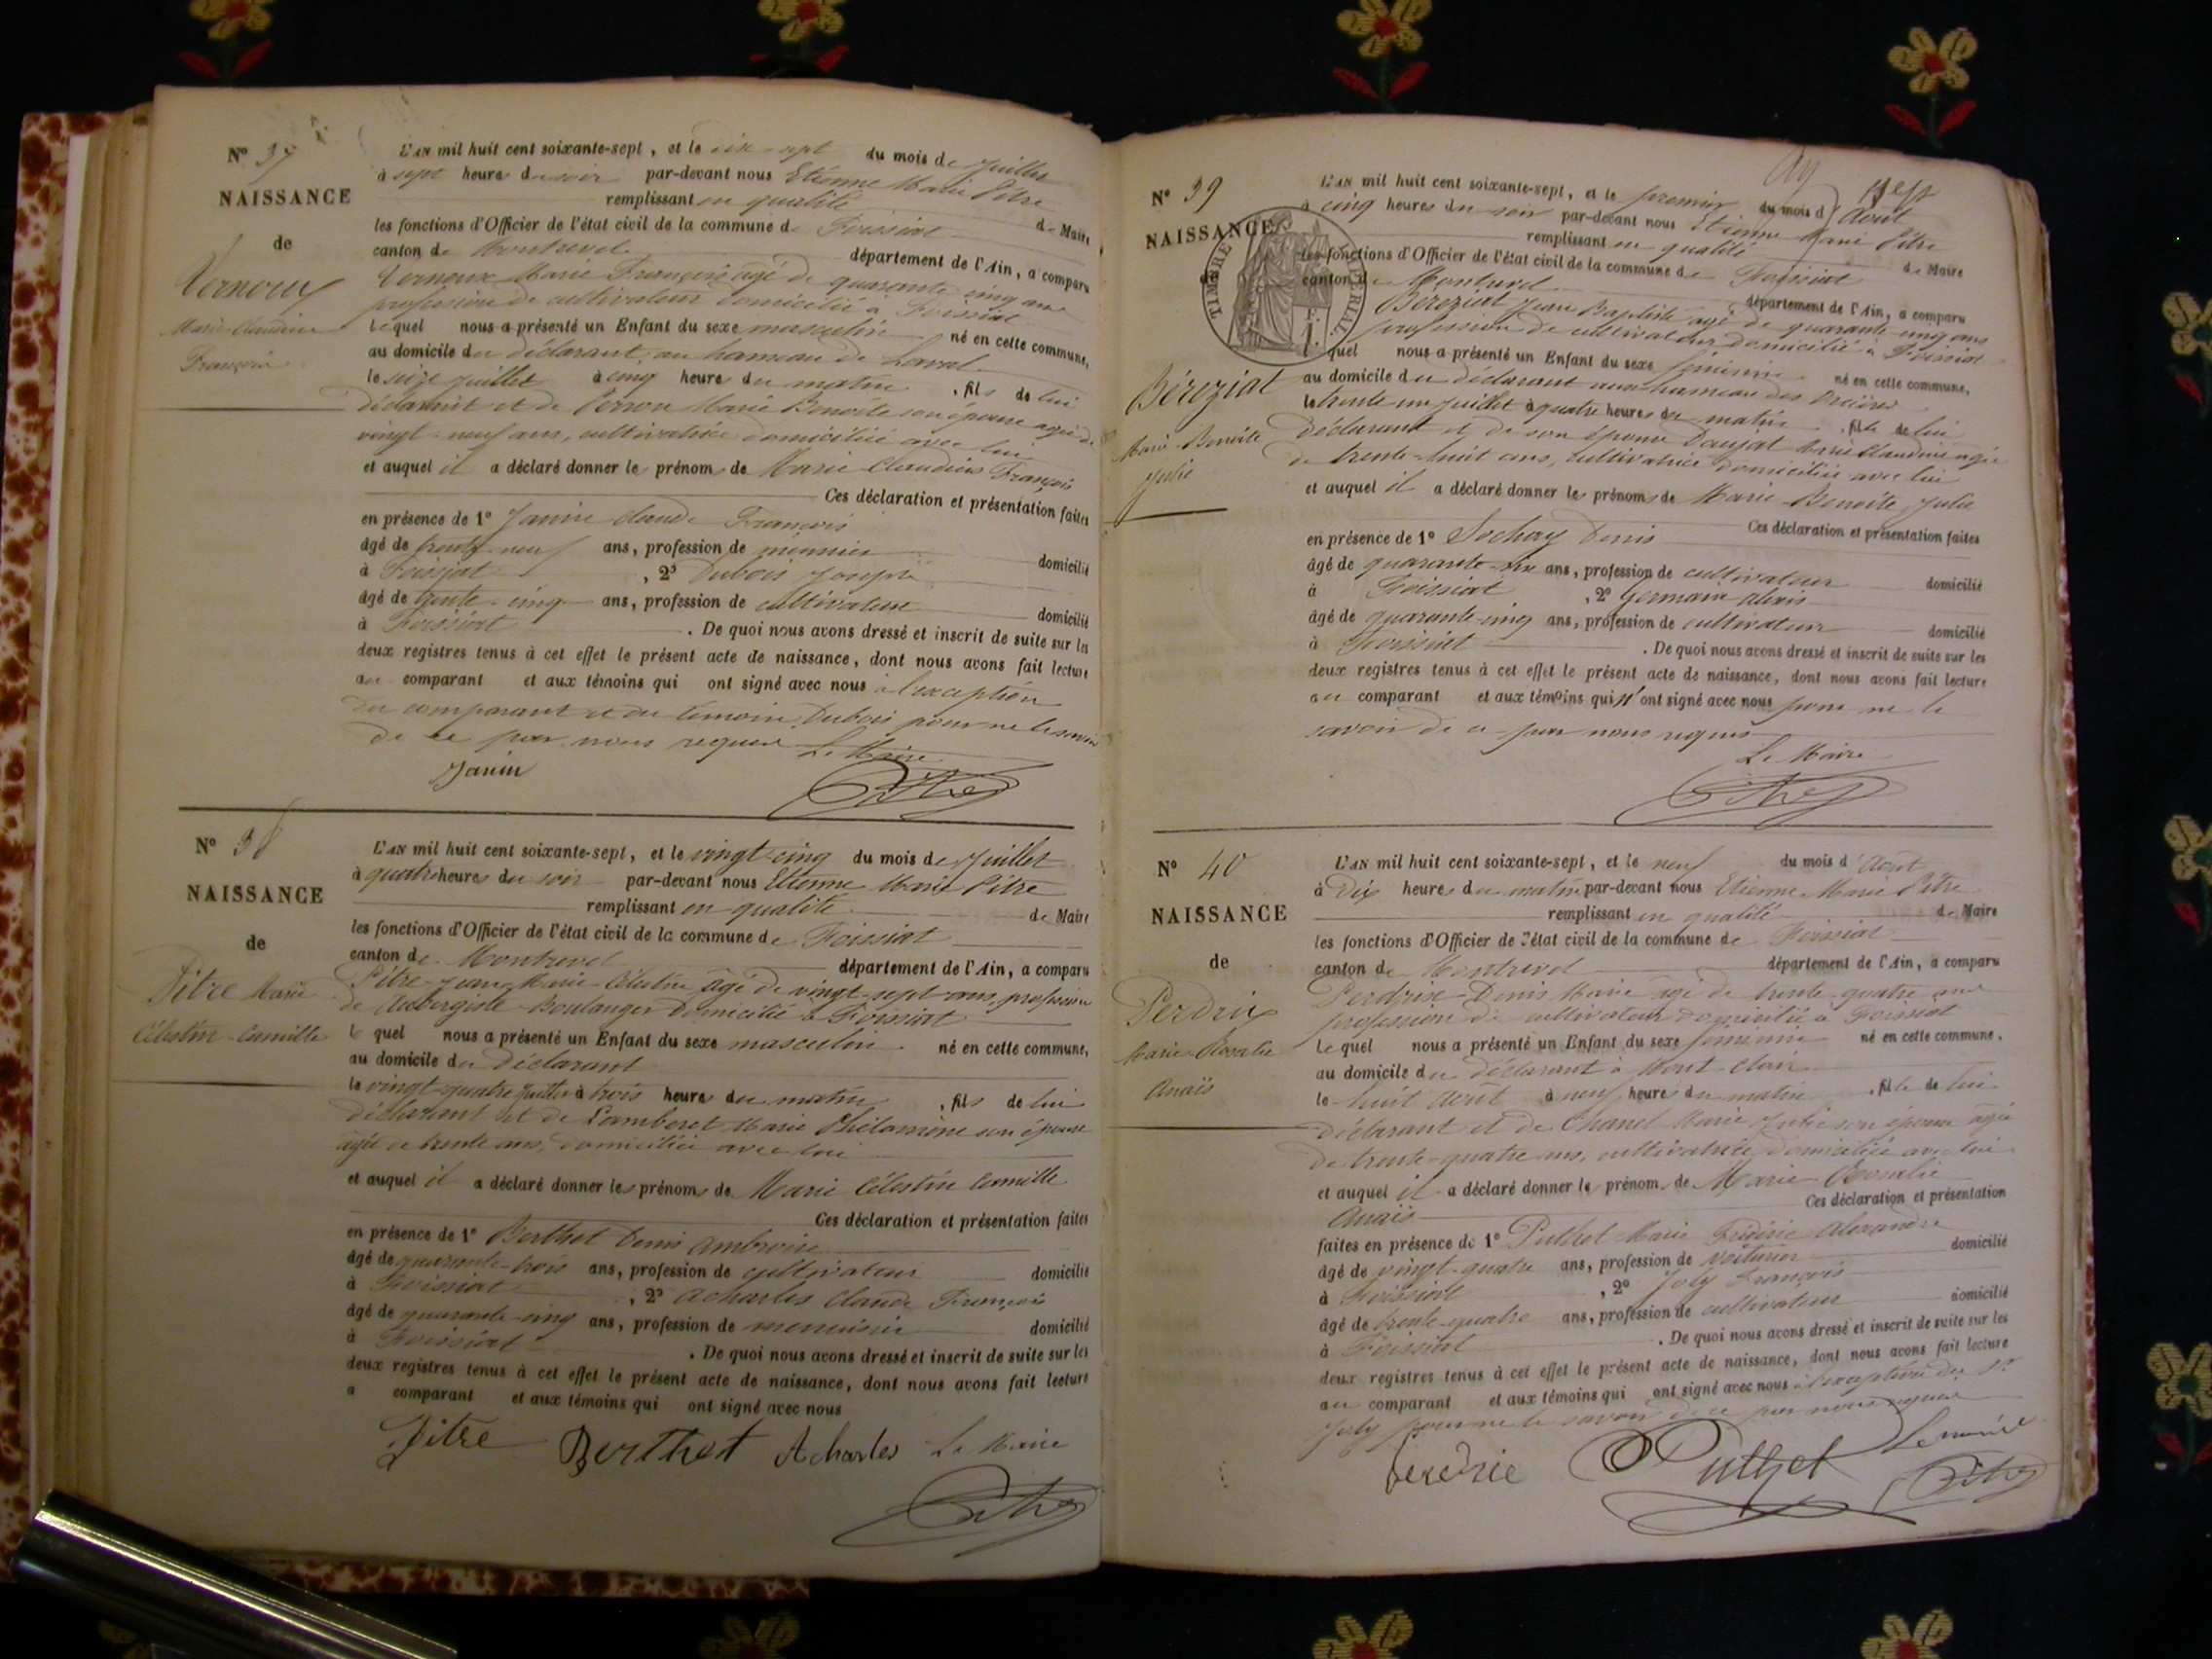 N° 37
NAISSANCE
de
Vernoux
Marie Claudius
François
L'AN mil huit cent soixante-sept, et le dix-sept du mois de juillet
à sept heures du soir par-devant nous Etienne Marie Pitre
remplissant en qualité de Maire
les fonctions d'Officier de l'état civil de la commune de Foissiat
canton de Montrevel département de l'Ain, a comparu
Vernoux Marie François âgé de quarante cinq ans
profession de cultivateur domicilié à Foissiat
Lequel nous a présenté un Enfant du sexe masculin né en cette commune,
au domicile du déclarant, au hameau de Laval
le seize juillet à cinq heures du matin, fils de lui
déclarant et de Perron Marie Benoite son épouse agée de
vingt-neuf ans, cultivatrice domiciliée avec lui
et auquel il a déclaré donner les prénoms de Marie Claudius François
Ces déclaration et présentation faites
en présence de 1° Janin Claude François
âgé de trente-neuf ans, profession de meunier domicilié
à Foissiat, 2° Dubois Joseph
âgé de trente-cinq ans, profession de cultivateur domicilié
à Foissiat. De quoi nous avons dressé et inscrit de suite sur les
deux registres tenus à cet effet le présent acte de naissance, dont nous avons fait lecture
au comparant et aux témoins qui ont signé avec nous à l'exception
du comparant et du témoin Dubois pour ne le savoir
de ce par nous requis Le Maire
Janin Pitre
N° 38
NAISSANCE
de
Pitre Marie
Célestin Camille
L'AN mil huit cent soixante-sept, et le vingt cinq du mois de juillet
à quatre heures du soir par-devant nous Etienne Marie Pitre
remplissant en qualité de Maire
les fonctions d'Officier de l'état civil de la commune de Foissiat
canton de Montrevel département de l'Ain, a comparu
Pitre Jean Marie Célestin âgé de vingt-sept ans, profession
de Aubergiste-Boulanger domicilié à Foissiat
lequel nous a présenté un Enfant du sexe masculin né en cette commune,
au domicile du déclarant
le vingt-quatre juillet à trois heures du matin, fils de lui
déclarant et de Lamberet Marie Philomène son épouse
agée de trente ans, domiciliée avec lui
et auquel il a déclaré donner les prénoms de Marie Célestin Camille
Ces déclaration et présentation faites
en présence de 1° Berthet Denis Ambroise
âgé de quarante-trois ans, profession de cultivateur domicilié
à Foissiat, 2° Acharles Claude François
âgé de quarante-cinq ans, profession de menuisier domicilié
à Foissiat. De quoi nous avons dressé et inscrit de suite sur les
deux registres tenus à cet effet le présent acte de naissance, dont nous avons fait lecture
a comparant et aux témoins qui ont signé avec nous
Pitre Berthet Acharles Le Maire
Pitre
N° 39
NAISSANCE
de
TIMBRE IMPERIAL
Béréziat
Marie-Benoite
Julie
L'AN mil huit cent soixante-sept, et le premier du mois d'Août
à cinq heures du soir par-devant nous Etienne Marie Pitre
remplissant en qualité de Maire
les fonctions d'Officier de l'état civil de la commune de Foissiat
canton de Montrevel département de l'Ain, a comparu
Béréziat Jean Baptiste âgé de quarante-cinq ans
profession de cultivateur domicilié à Foissiat
lequel nous a présenté un Enfant du sexe féminin né en cette commune,
au domicile du déclarant au hameau des
le trente un juillet à quatre heures du matin, fille de lui
déclarant et de son épouse Daujat Marie Claudine agée
de trente-huit ans, cultivatrice domiciliée avec lui
et auquel il a déclaré donner les prénoms de Marie Benoite Julie
Ces déclaration et présentation faites
en présence de 1° Sochay Denis
âgé de quarante-un ans, profession de cultivateur domicilié
à Foissiat, 2° Germain Alexis
âgé de quarante-cinq ans, profession de cultivateur domicilié
à Foissiat. De quoi nous avons dressé et inscrit de suite sur les
deux registres tenus à cet effet le présent acte de naissance, dont nous avons fait lecture
au comparant et aux témoins qui n'ont signé avec nous pour ne le
savoir de ce par nous requis
Le Maire
Pitre
N° 40
NAISSANCE
de
Perdrix
Marie-Rosalie
Anaïs
L'AN mil huit cent soixante-sept, et le neuf du mois d'Août
à Dix heures du matin par-devant nous Etienne Marie Pitre
remplissant en qualité de Maire
les fonctions d'Officier de l'état civil de la commune de Foissiat
canton de Montrevel département de l'Ain, a comparu
Perdrix Denis Marie âgé de trente-quatre ans
profession de cultivateur domicilié à Foissiat
Lequel nous a présenté un Enfant du sexe féminin né en cette commune,
au domicile du déclarant à Mont-Clair
le huit août à neuf heures du matin, fille de lui
déclarant et de Chanel Marie Julie son épouse agée
de trente-quatre ans, cultivatrice domiciliée avec lui
et auquel il a déclaré donner les prénoms de Marie Rosalie
Anaïs Ces déclaration et présentation
faites en présence de 1° Puthet Marie Frédéric Alexandre
âgé de vingt-quatre ans, profession de voiturier domicilié
à Foissiat, 2° Joly François
âgé de trente-quatre ans, profession de cultivateur domicilié
à Foissiat. De quoi nous avons dressé et inscrit de suite sur les
deux registres tenus à cet effet le présent acte de naissance, dont nous avons fait lecture
au comparant et aux témoins qui ont signé avec nous à l'exception du Sr
Joly pour ne le savoir de ce par nous requis
Perdrie Puthet Le maire
Pitre